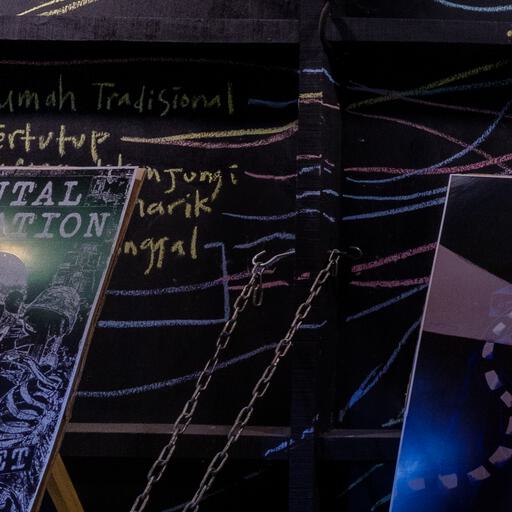 umah Tradisional
ertutup
njungi
narik
nggal
NTAL
ATION
ET